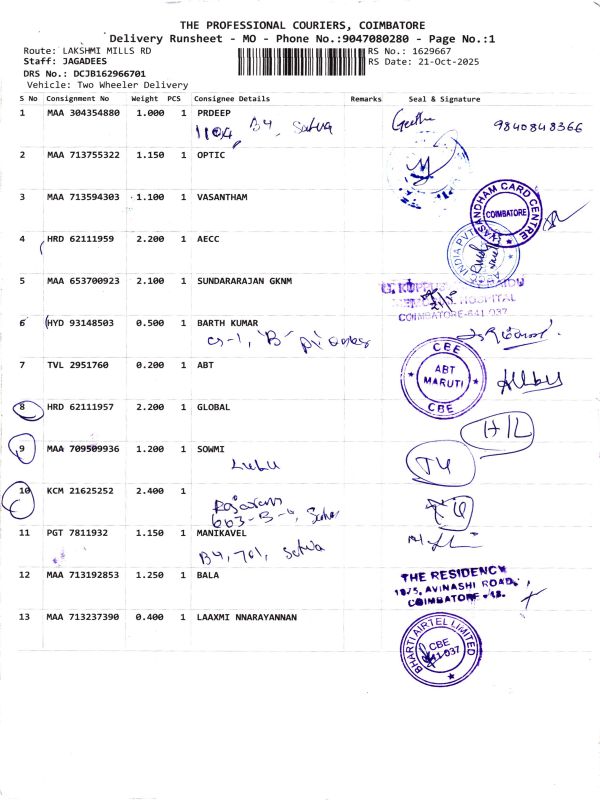 THE PROFESSIONAL COURIERS, COIMBATORE
Delivery Runsheet - MO - Phone No.:9047080280 - Page No.:1
Route: LAKSHMI MILLS RD
RS No.: 1629667
Staff: JAGADEES
RS Date: 21-Oct-2025
DRS No.: DCJB162966701
Vehicle: Two Wheeler Delivery
S No Consignment No Weight PCS Consignee Details Remarks Seal & Signature
1 MAA 304354880 1.000 1 PRDEEP Geetha 9840848366
1104, B4, Satva
2 MAA 713755322 1.150 1 OPTIC
3 MAA 713594303 1.100 1 VASANTHAM
VASANDHAM CARD CENTRE
COIMBATORE
4 HRD 62111959 2.200 1 AECC
INDIA PVT
5 MAA 653700923 2.100 1 SUNDARARAJAN GKNM
HOSPITAL
COIMBATORE-641 037
6 HYD 93148503 0.500 1 BARTH KUMAR
7 TVL 2951760 0.200 1 ABT
CBE
ABT
MARUTI
CBE
8 HRD 62111957 2.200 1 GLOBAL
H/L
9 MAA 709509936 1.200 1 SOWMI
Lulu
10 KCM 21625252 2.400 1
Rajaram
603-B-6,
11 PGT 7811932 1.150 1 MANIKAVEL
B4, 701, Satva
12 MAA 713192853 1.250 1 BALA
THE RESIDENCY
1075, AVINASHI ROAD,
COIMBATORE - 18.
13 MAA 713237390 0.400 1 LAAXMI NNARAYANNAN
BHARTI AIRTEL LIMITED
CBE
641-037